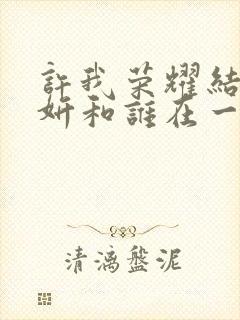 許我荣耀結
妍和誰在一
清漓盤泥